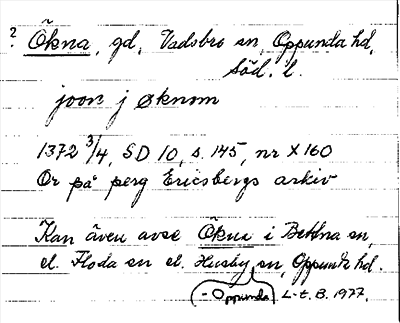 ? Ökna, gd, Vadsbro sn, Oppunda hd,
Söd. l.
joon j øknom
1372 3/4, SD 10, s. 145, nr X 160
Or på perg Ericsbergs arkiv
Kan även avse Ökna i Bettna sn,
el. Floda sn el. Husby sn, Oppunda hd.
- Oppunda L-E. B. 1977.